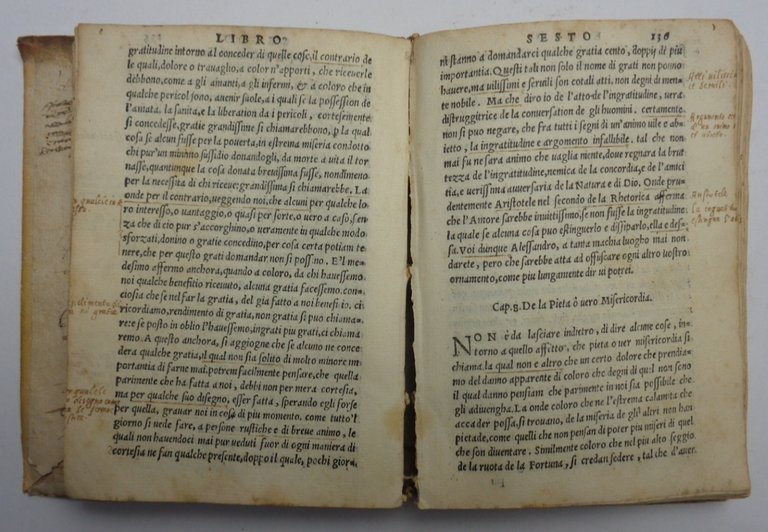 LIBRO
gratitudine intorno al conceder di quelle cose, il contrario de
le quali, dolore o trauaglio, a color n'apporti, che riceuerle
debbono, come a gli amanti, a gli infermi, & a coloro che in
qualche pericol sono, auenir suole, a i quali se la possession de
l'amata, la sanita, e la liberation da i pericoli, cortesemente
si concedesse, gratie grandissime si chiamarebbono, p la qual
cosa se al cun fusse per la pouerta, in estrema miseria condotto
chi pur'un minimo sussidio donandogli, da morte a uita il tor
nasse, quantunque la cosa donata breuissima fusse, nondimeno
per la necessita di chi riceue, grandissima si chiamarebbe. La
onde per il contrario, ueggendo noi, che alcuni per qualche lo
ro interesso, o uantaggio, o quasi per sorte, o uero a caso, sen
za che di cio pur s'accorghino, o ueramente in qualche modo
sforzati, donino o gratie concedino, per cosa certa potiam te
nere, che per questo grati domandar non si possino. E'l me
desimo affermo anchora, quando a coloro, da chi hauessemo
noi qualche benefitio riceuuto, alcuna gratia facessemo. con
ciosia che se nel far la gratia, del gia fatto a noi benefitio, ci
ricordiamo, rendimento di gratia, non gratia si puo chiama
re: e se posto in oblio l'hauessemo, ingrati piu grati, ci chiama
remo. A questo anchora, si aggiogne che se alcuno ne conce
dera qualche gratia, il qual non sia solito di molto minore im
portantia di farne mai. potrem facilmente pensare, che quella
parimente che ha fatta a noi, debbi non per mera cortesia,
ma per qualche suo disegno, esser fatta, sperando egli forse
per quella, grauar noi in cosa di piu momento. come tutto'l
giorno si uede fare, a persone rustiche e di breue animo, le
quali non hauendoci mai pur ueduti fuor di ogni maniera di
cortesia ne fan qualche presente, doppo il quale, pochi gior,
SESTO 136
ni stanno a domandarci qualche gratia cento, doppij di piu
importantia. Questi tali non solo il nome di grati non ponno
hauere, ma uilissimi e seruili son cotali atti, non degni di men
te nobile. Ma che diro io de l'atto de l'ingratitudine, uera
distruggitrice de la conuersation de gli huomini. certamente
non si puo negare, che fra tutti i segni di un'animo uile e ab-
ietto, la ingratitudine e argomento infallibile. tal che non
mai fu ne sara animo che uaglia niente, doue regnara la brut
tezza de l'ingratitudine, nemica de la concordia, e de l'amici
tia, e uerissima auuersaria de la Natura e di Dio. Onde pru
dentemente Aristotele nel secondo de la Rhetorica afferma
che l'Amore sarebbe inuittissimo, se non fusse la ingratitudine
la quale se alcuna cosa puo estinguerlo e dissiparlo, ella e des-
sa. Voi dunque Alessandro, a tanta machia luogho mai non
darete, poi che sarebbe atta ad offuscare ogni altro uostro
ornamento, come piu lungamente dir ui potrei.
Cap. 8. De la Pieta ò uero Misericordia.
NON è da lasciare indietro, di dire alcune cose, in,
torno a quello affetto, che pieta o uer misericordia si
chiama. la qual non e altro che un certo dolore che prendia-
mo del danno apparente di coloro che degni di qual non seno
il qual danno pensiam che parimente in noi sia possibile che
gli adiuengha. La onde color che ne l'estrema calamita che
accader possa, si trouano, de la miseria de gli altri non han
pietade, come quelli che non pensan di poter piu miseri di quel
che son diuentare. Similmente coloro che nel piu alto seggio
de la ruota de la Fortuna, si credan sedere, tal che d'auer,